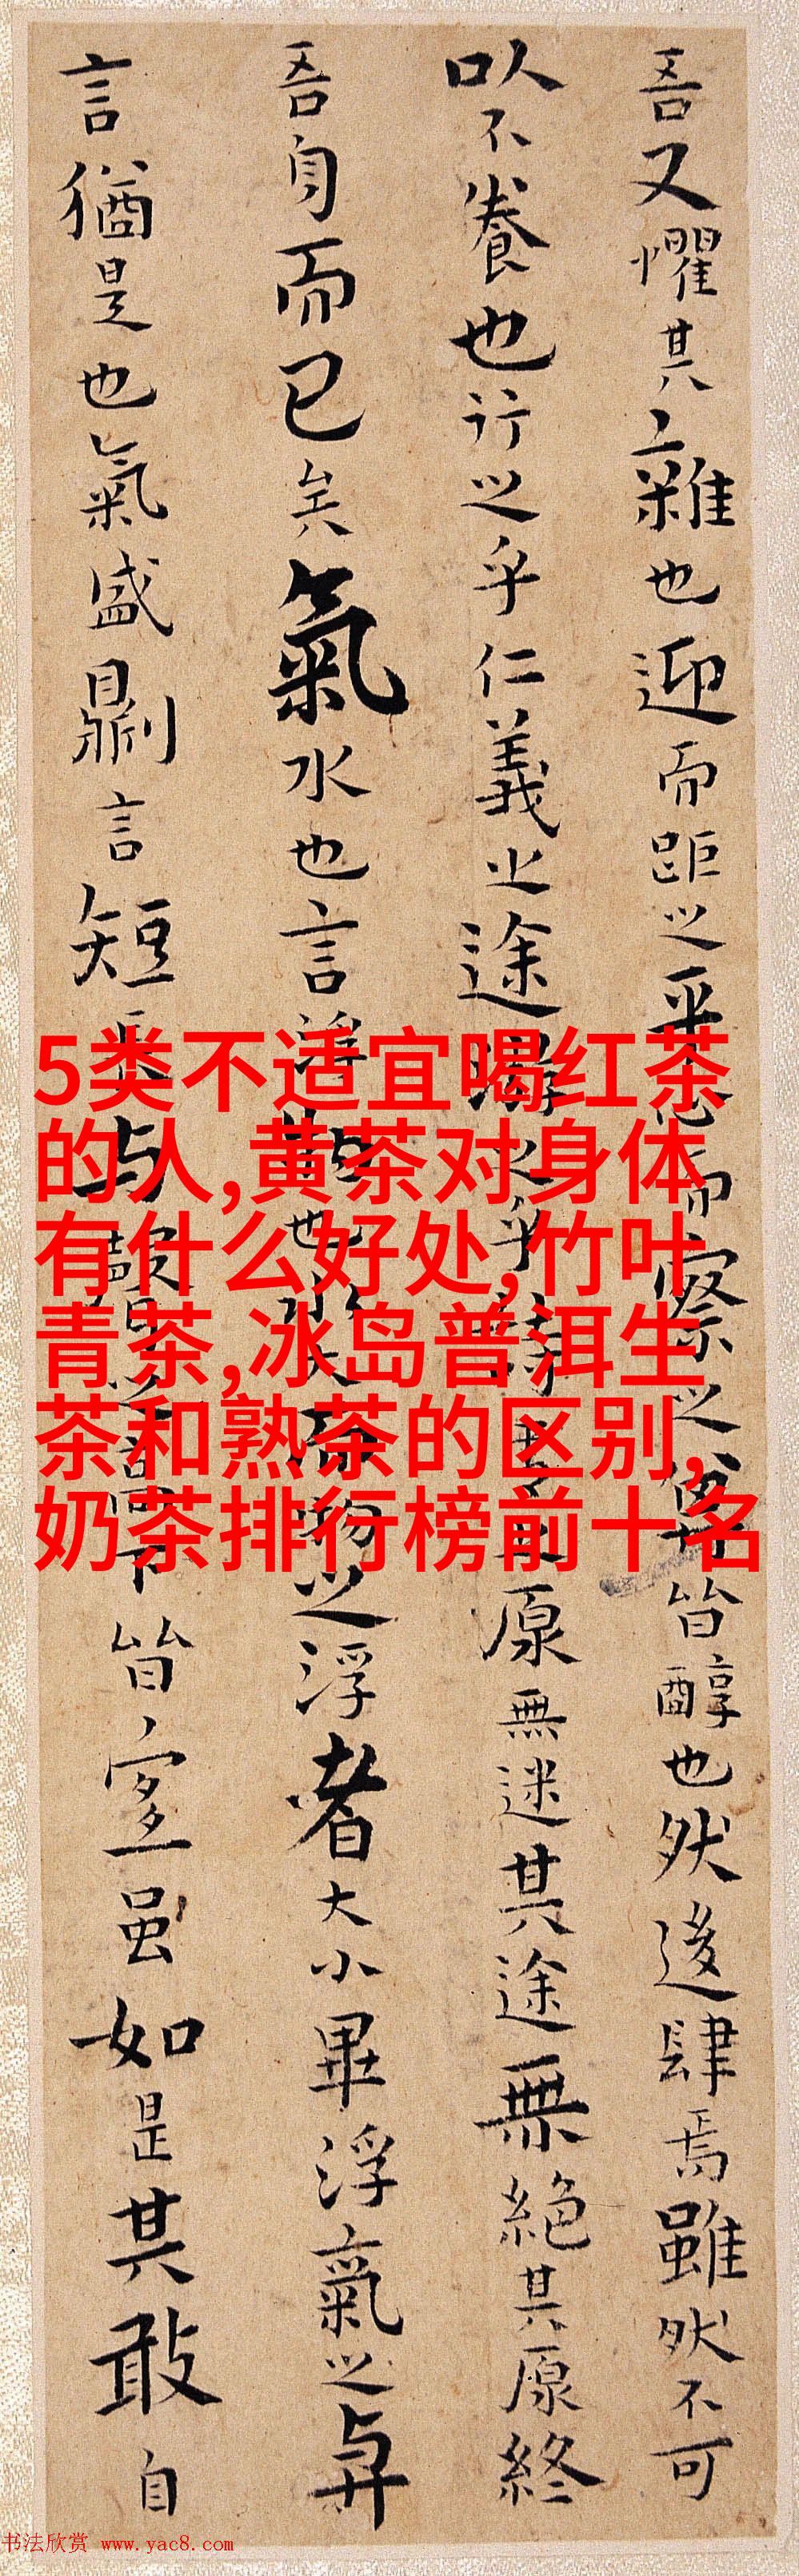 吾又懼其雜也迎而距之平心而察之皆醇也然後肆焉雖然不可
以不養也行之乎仁義之途游之乎詩書之原無迷其途無絕其原終
吾身而已矣氣水也言浮物也水大而物之浮者大小畢浮氣之與
言猶是也氣盛則言短長與聲之高下皆宜虽如是其敢自
5类不适宜喝红茶
的人,黄茶对身体
有什么好处,竹叶
青茶,冰岛普洱生
茶和熟茶的区别,
奶茶排行榜前十名
书法欣赏 www.yac8.com